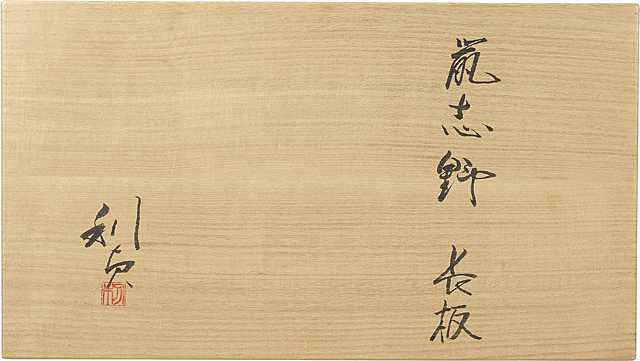 鼠志野 長板
利